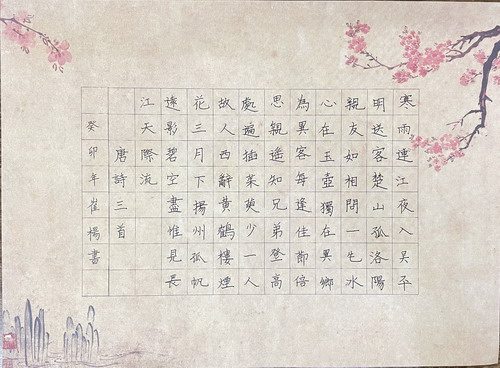 寒雨連江夜入吴平
明送客楚山孤洛陽
親友如相問一片氷
心在玉壺獨在異鄉
為異客每逢佳節倍
思親遥知兄弟登高
處遍插茱萸少一人
故人西辭黄鶴樓煙
花三月下揚州孤帆
遠影碧空盡惟見長
江天際流
唐詩三首
癸卯年崔楊書